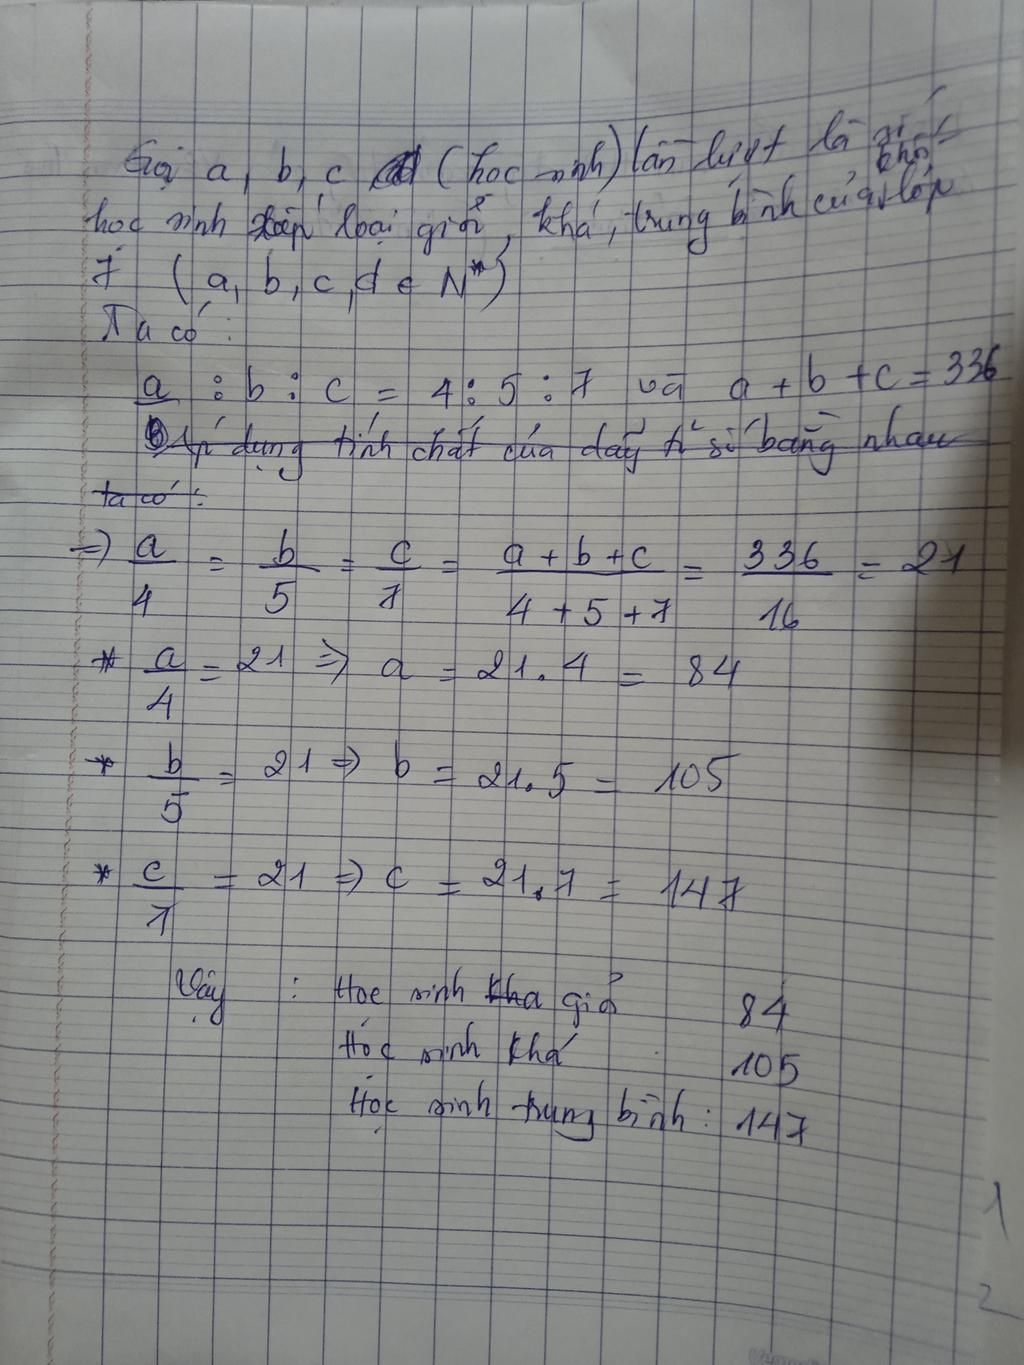 Gọi a, b, c (học sinh) lần lượt là số
học sinh xếp loại giỏi, khá, trung bình của khối lớp
7 (a, b, c, d ∈ N*)
Ta có :
a : b : c = 4 : 5 : 7 và a + b + c = 336
Áp dụng tính chất của dãy tỉ số bằng nhau
ta có :
=> a/4 = b/5 = c/7 = (a + b + c)/(4 + 5 + 7) = 336/16 = 21
* a/4 = 21 => a = 21 . 4 = 84
* b/5 = 21 => b = 21 . 5 = 105
* c/7 = 21 => c = 21 . 7 = 147
Vậy : Học sinh kha giỏi 84
Học sinh khá 105
Học sinh trung bình : 147
1
2